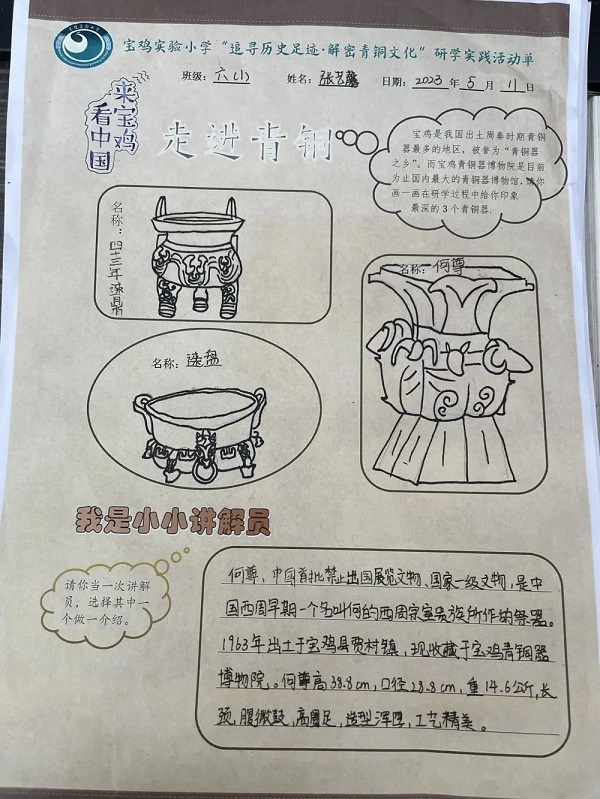 宝鸡实验小学“追寻历史足迹·解密青铜文化”研学实践活动单
班级：六（1） 姓名：张艺馨 日期：2023 年 5 月 11 日
来宝鸡
看中国
走进青铜
宝鸡是我国出土周秦时期青铜
器最多的地区，被誉为“青铜器
之乡”。而宝鸡青铜器博物院是目前
为止国内最大的青铜器博物馆，请你
画一画在研学过程中给你印象
最深的 3 个青铜器.
名称：四十三年逨鼎
名称：何尊
名称：逨盘
我是小小讲解员
请你当一次讲解
员，选择其中一
个做一介绍。
何尊，中国首批禁止出国展览文物、国家一级文物，是中
国西周早期一个名叫何的西周宗室贵族所作的祭器。
1963年出土于宝鸡县贾村镇，现收藏于宝鸡青铜器
博物院。何尊高38.8cm，口径28.8cm，重14.6公斤，长
颈，腹微鼓，高圈足，造型浑厚，工艺精美。